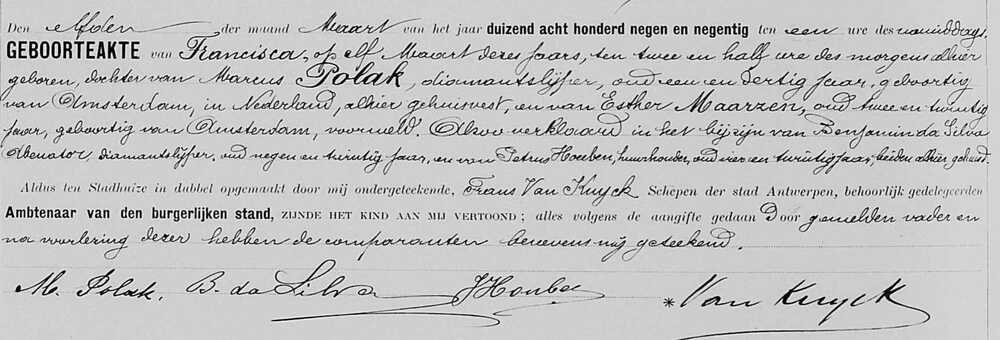 Den elfden der maand Maart van het jaar duizend acht honderd negen en negentig ten een ure des namiddags,
GEBOORTEAKTE van Francisca, op elf Maart dezes jaars, ten twee en half ure des morgens alhier
geboren, dochter van Marcus Polak, diamantslijper, oud een en dertig jaar, geboortig
van Amsterdam, in Nederland, alhier gehuisvest, en van Esther Maarzen, oud twee en twintig
jaar, geboortig van Amsterdam, voormeld. Alzoo verklaard in het bijzijn van Benjamin da Silva
Abenator, diamantslijper, oud negen en twintig jaar, en van Petrus Houben, huurhouder, oud vier en twintig jaar, beiden alhier gehuisd.
Aldus ten Stadhuize in dubbel opgemaakt door mij ondergeteekende, Frans Van Kuyck Schepen der stad Antwerpen, behoorlijk gedelegeerden
Ambtenaar van den burgerlijken stand, ZIJNDE HET KIND AAN MIJ VERTOOND; alles volgens de aangifte gedaan Door gemelden vader en
na voorlezing dezer hebben de comparanten benevens mij geteekend.
M. Polak. B. da Silva JHouben * Van Kuyck